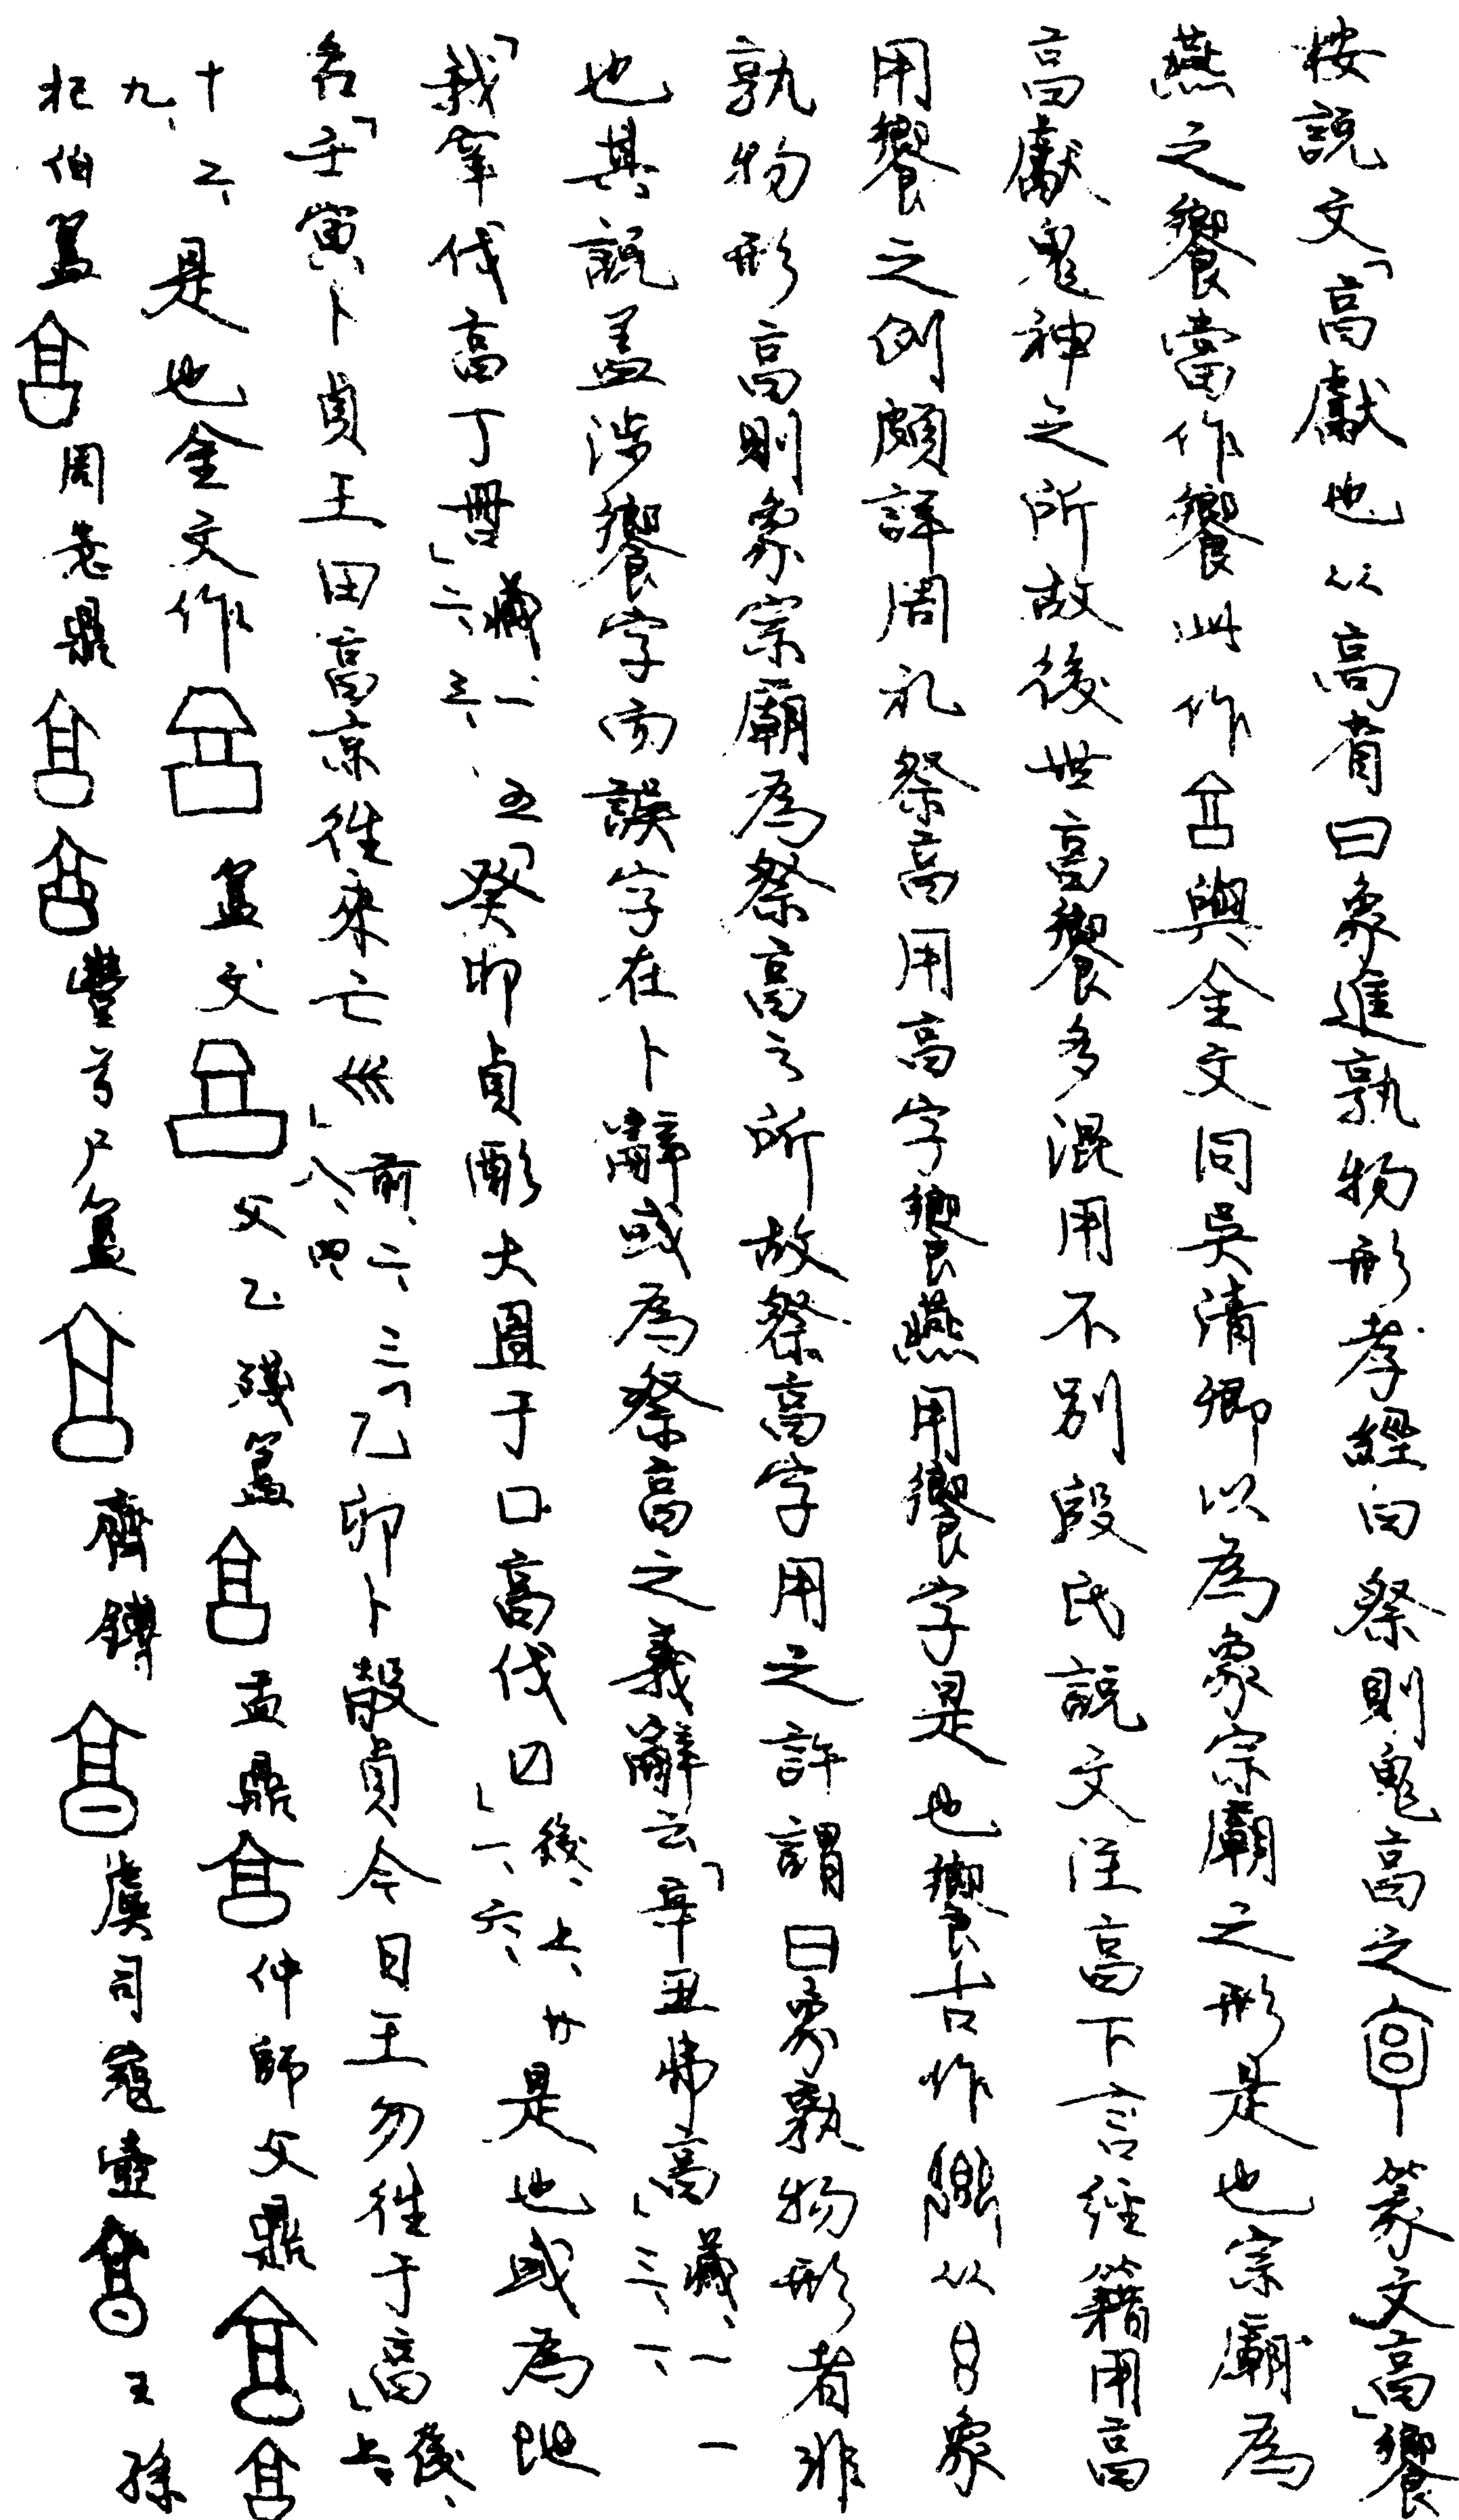 按說文「亯獻也从高省曰象進孰物形孝經曰祭則鬼亯之𠅠篆文亯」饗
燕之饗當作饗此作㐭與金文同吳清卿以為象宗廟之形是也宗廟為
亯獻鬼神之所故後世亯饗多混用不別段氏說文注亯下言經籍用亯
用饗之例頗詳周礼祭亯用亯字饗燕用饗字是也饗古作從象
孰物形亯則象宗廟為祭亯之所故祭亯字用之許謂曰象孰物形者非
也其說盖涉饗字而誤字在卜辭或為祭亯之義辭云「辛丑帚亯」藏、一一三、一、
「我𢆉伐亯丁」藏一、五二六、三、「癸卯貞酌大亯于口亯伐囚」後、上、廿一、六、是也或為地
名「壬寅卜貞王田亯京徃來亡巛」前、二、三八、四、「乙卯卜㱿貞今日王勿徃于亯」後、上、
十二、九、是也金文作 簋文 父乙殘簋 盂鼎 仲師父鼎
杞伯簋 周㤅鼎 豐兮尸簋 齊鎛 虞司寇壺 王孫